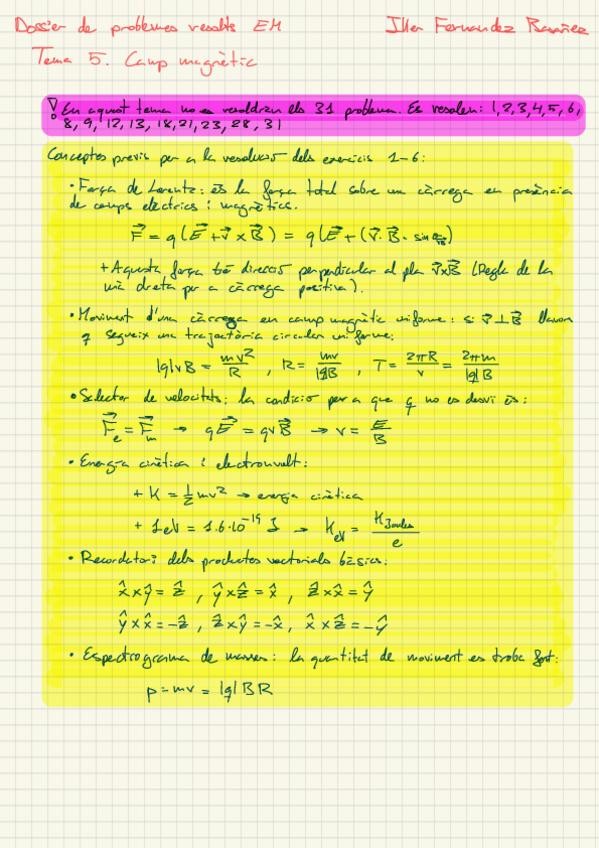 Dossier de problemes resolts EM
Iller Fernandez
Tema 5. Camp magnètic
! En aquest tema no es resoldran els 31 problema. Es resolen: 1,2,3,4,5,6,
8,9,12,13,18,21,23,28,31
Conceptes previs per a la resolució dels exercicis 1-6:
• Força de Lorentz: és la força total sobre una càrrega en presència
de camps elèctrics i magnètics.
F⃗ = q(E⃗ + v⃗ × B⃗) = q(E⃗ + (v⃗ · B⃗ · sin
+ Aquesta força té direcció perpendicular al pla v⃗×B⃗ (Regla de la
mà dreta per a càrrega positiva).
• Moviment d'una càrrega en camp magnètic uniforme: si v⃗ ⊥ B⃗ llavors
q segueix una trajectòria circular uniforme:
|q|vB = mv²/R , R = mv/|q|B , T = 2πR/v = 2πm/|q|B
• Selector de velocitats: la condició per a que q no es desvii és:
F⃗e = F⃗m → qE⃗ = qvB⃗ → v = E/B
• Energia cinètica i electronvolt:
+ K = ½mv² → energia cinètica
+ 1eV = 1.6·10⁻¹⁹ J → KeV = KJoules/e
• Recordatori dels productes vectorials bàsics:
x̂ × ŷ = ẑ , ŷ × ẑ = x̂ , ẑ × x̂ = ŷ
ŷ × x̂ = -ẑ , ẑ × ŷ = -x̂ , x̂ × ẑ = -ŷ
• Espectrograma de masses: la quantitat de moviment es troba fent:
p = mv = |q|BR